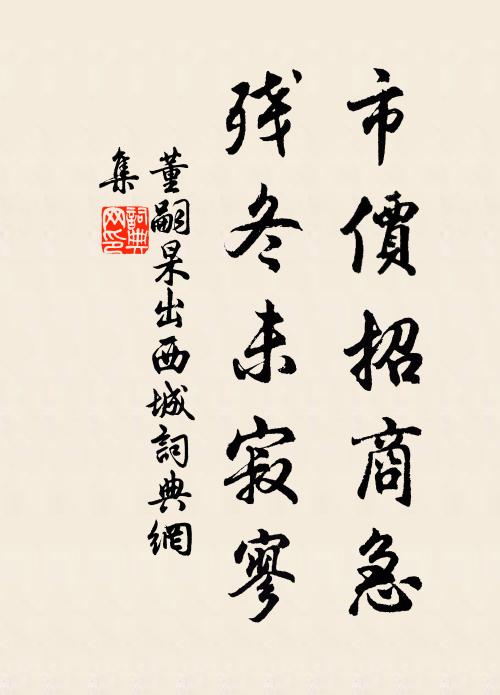 市價招商急
残冬未寂寥
董嗣杲出西城詞典網
集
詞典
网印